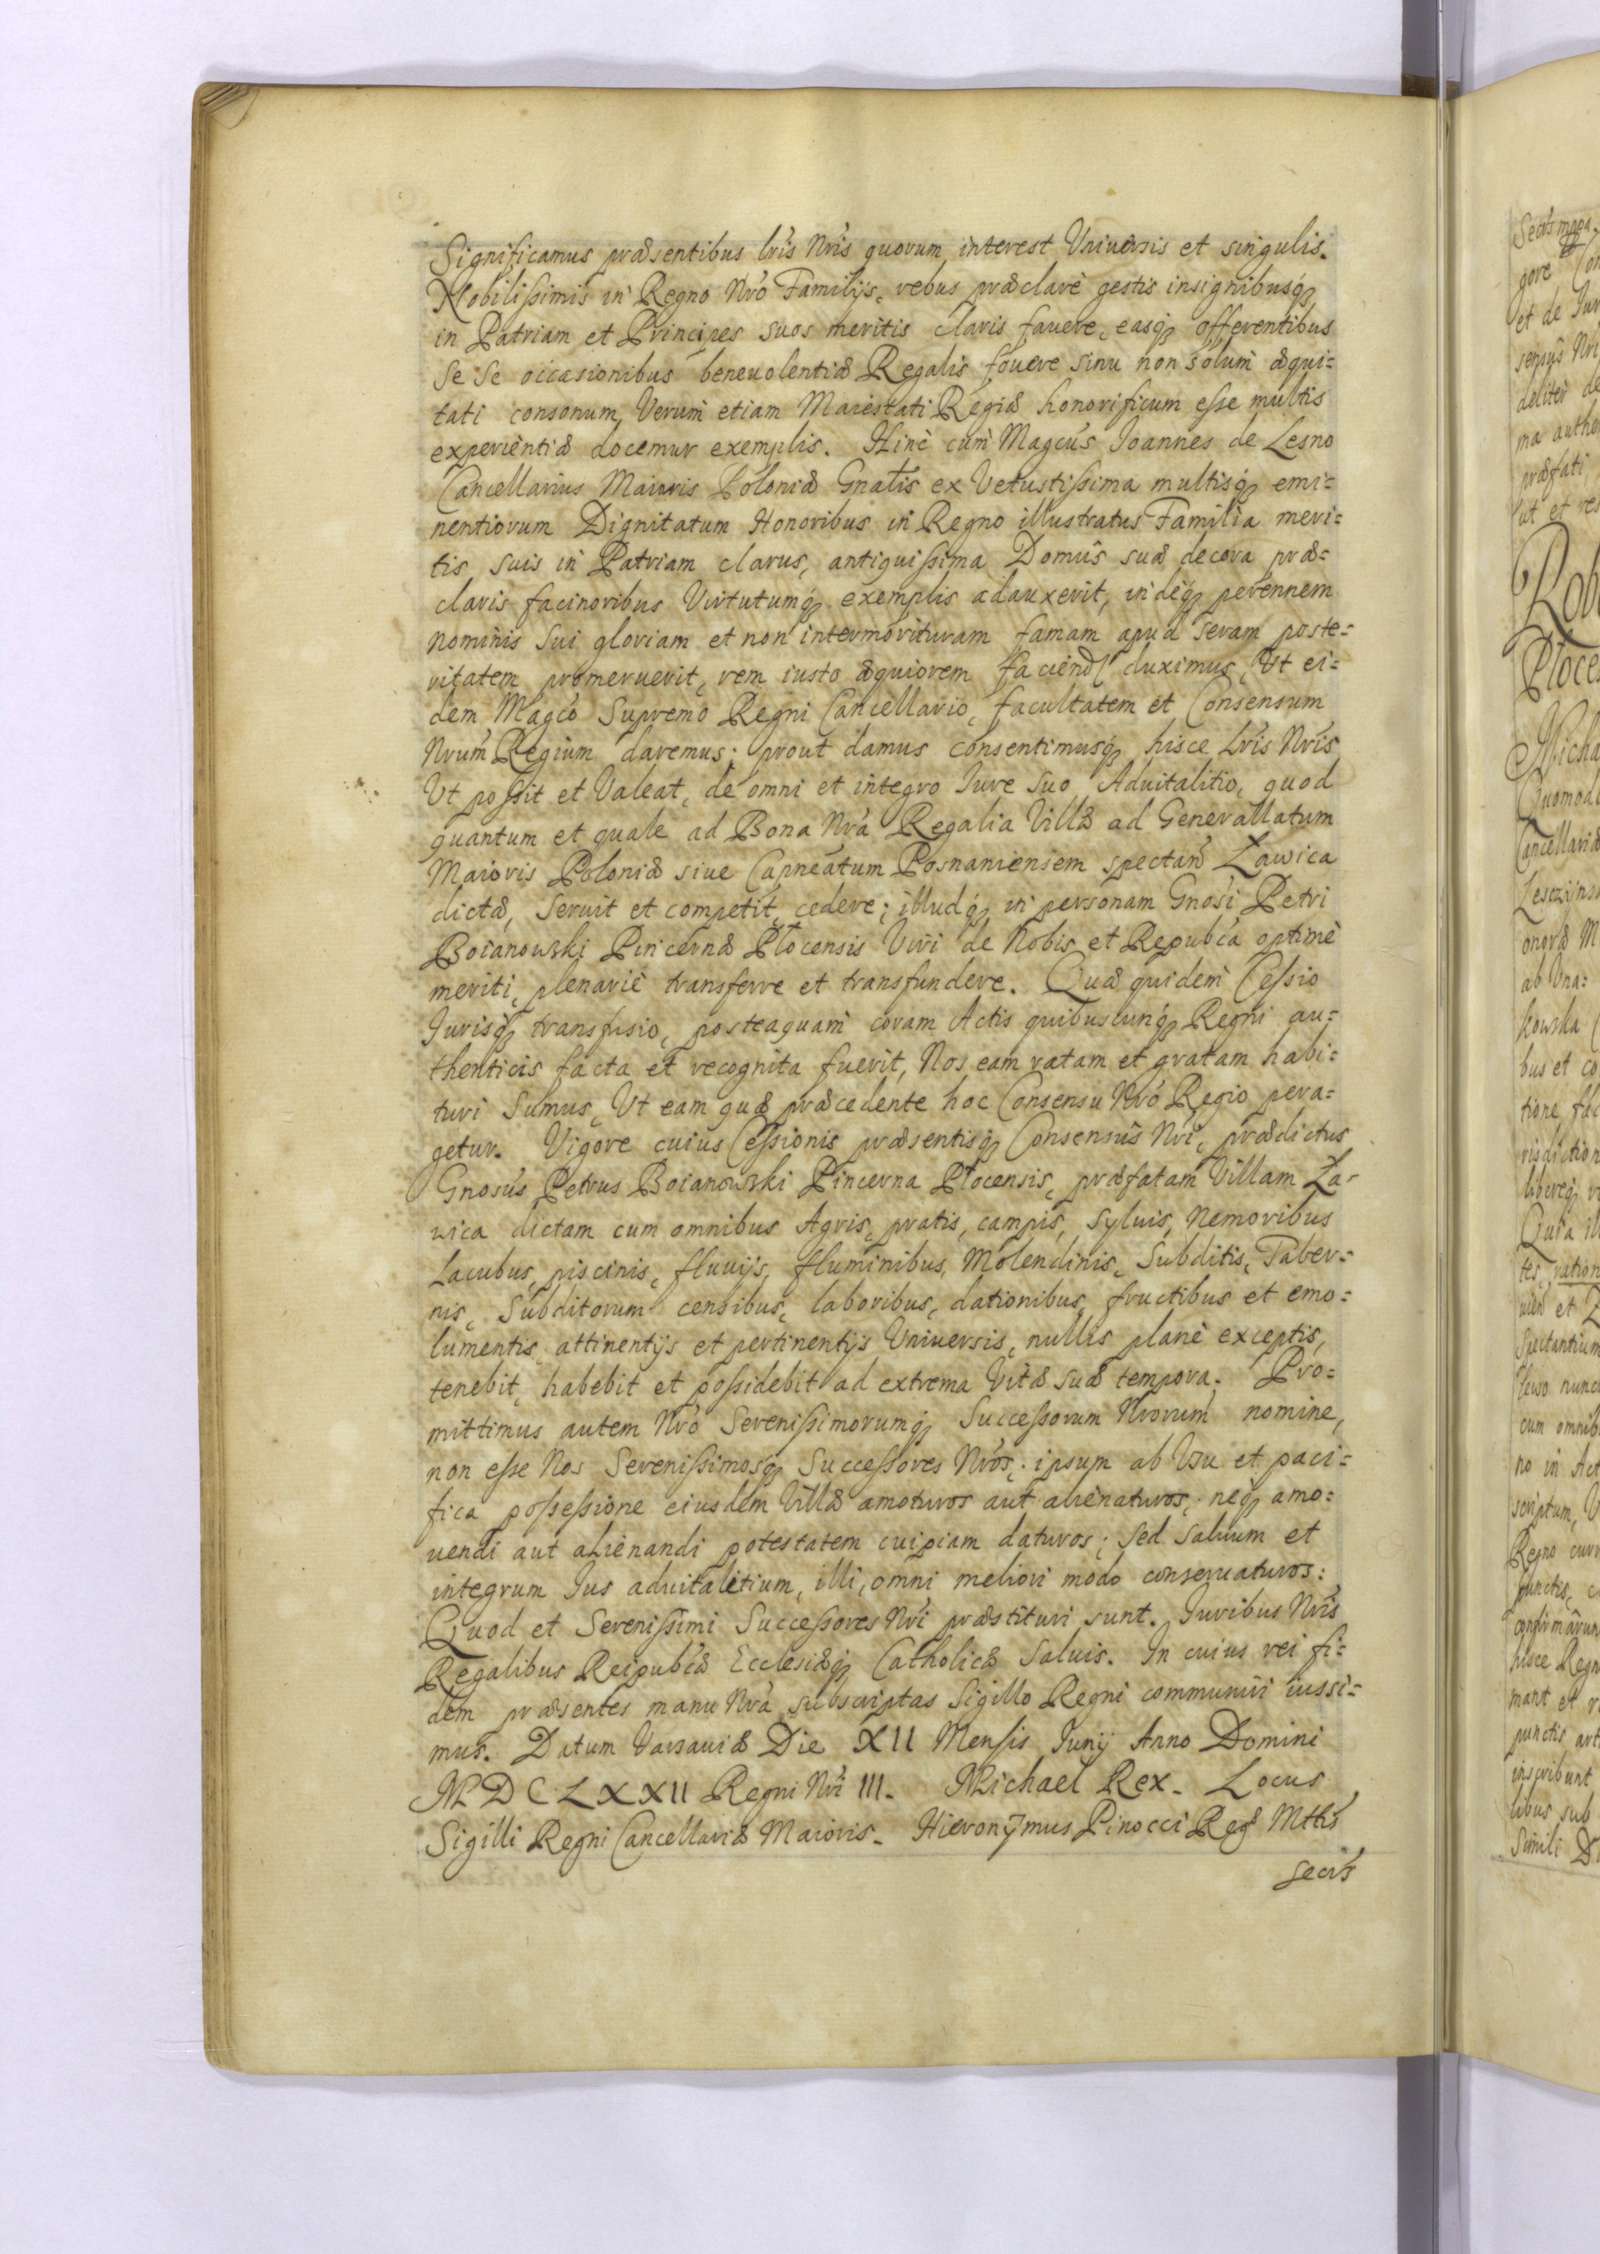 Significamus præsentibus lris Nris quorum interest Vniuersis et singulis.
Nobilissimis in Regno Nro Familijs, rebus præclarè gestis insignibusq;
in Patriam et Principes suos meritis claris fauere, easq; offerentibus
se se occasionibus beneuolentiæ Regalis fouere sinu non solum æqui=
tati consonum, Verum etiam Maiestati Regiæ honorificum esse multis
experientiæ docemur exemplis. Hinc cum Magcus Ioannes de Lesno
Cancellarius Maioris Poloniæ Gnalis ex Vetustissima multisq; emi=
nentiorum Dignitatum Honoribus in Regno illustratus Familia meri=
tis suis in Patriam clarus, antiquissima Domûs suæ decora præ=
claris facinoribus Virtutumq; exemplis adauxerit, indeq; perennem
nominis sui gloriam et non intermorituram famam apud seram poste=
ritatem promeruerit, rem iusto æquiorem faciend duximus, Vt ei=
dem Magco Supremo Regni Cancellario, facultatem et Consensum
Nrum Regium daremus; prout damus consentimusq; hisce Lris Nris
Vt possit et Valeat, de omni et integro Iure suo Aduitalitio, quod
quantum et quale ad Bona Nra Regalia Villæ ad Generallatum
Maioris Poloniæ siue Capneatum Posnaniensem spectan Ławica
dictæ, seruit et competit, cedere; illudq; in personam Gnosi Petri
Boianowski Pincernæ Płocensis Viri de Nobis et Repubca optimè
meriti, plenariè transferre et transfundere. Quæ quidem Cessio
Iurisq; transfusio, posteaquam coram Actis quibuscunq; Regni au=
thenticis facta et recognita fuerit, Nos eam ratam et gratam habi=
turi sumus, Vt eam quæ præcedente hoc Consensu Nro Regio pera=
getur. Vigore cuius Cessionis præsentisq; Consensûs Nri, prædictus
Gnosus Petrus Boianowski Pincerna Płocensis, præfatam Villam Ła=
wica dictam cum omnibus Agris, pratis, campis, syluis, Nemoribus
Lacubus, piscinis, fluuijs, fluminibus, Molendinis, Subditis, Taber=
nis, Subditorum censibus, laboribus, dationibus, fructibus et emo=
lumentis, attinentijs et pertinentijs Vniuersis, nullis planè exceptis,
tenebit, habebit et possidebit ad extrema Vitæ suæ tempora. Pro=
mittimus autem Nro Serenissimorumq; Successorum Nrorum nomine,
non esse Nos Serenissimosq; Successores Nros, ipsum ab Vsu et paci=
fica possessione eiusdem Villæ amoturos aut alienaturos; neq; amo=
uendi aut alienandi potestatem cuipiam daturos; sed saluum et
integrum Ius aduitalitium, illi, omni meliori modo conseruaturos:
Quod et Serenissimi Successores Nri præstituri sunt. Iuribus Nris
Regalibus Reipubcæ Ecclesiæq; Catholicæ saluis. In cuius rei fi=
dem præsentes manu Nra subscriptas Sigillo Regni communiri iussi=
mus. Datum Varsauiæ Die XII Mensis Iunij Anno Domini
MDCLXXII Regni Nri III. Michael Rex. Locus
Sigilli Regni Cancellariæ Maioris. Hieronymus Pinocci Reg Mttis
Secris